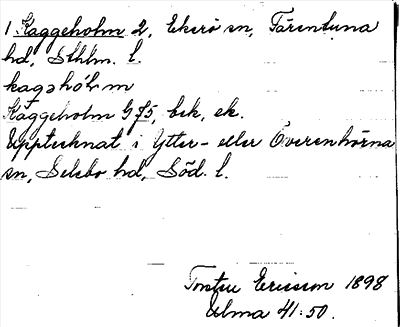 1 Kaggeholm 2, Ekerö sn, Färentuna
hd, Sthlm. l.
kagəhòl m
Kaggeholm G f5, bek, ek.
Upptecknat i Ytter- eller Överenhörna
sn, Selebo hd, Söd. l.
Ericsson 1898
Ulma 41:50.